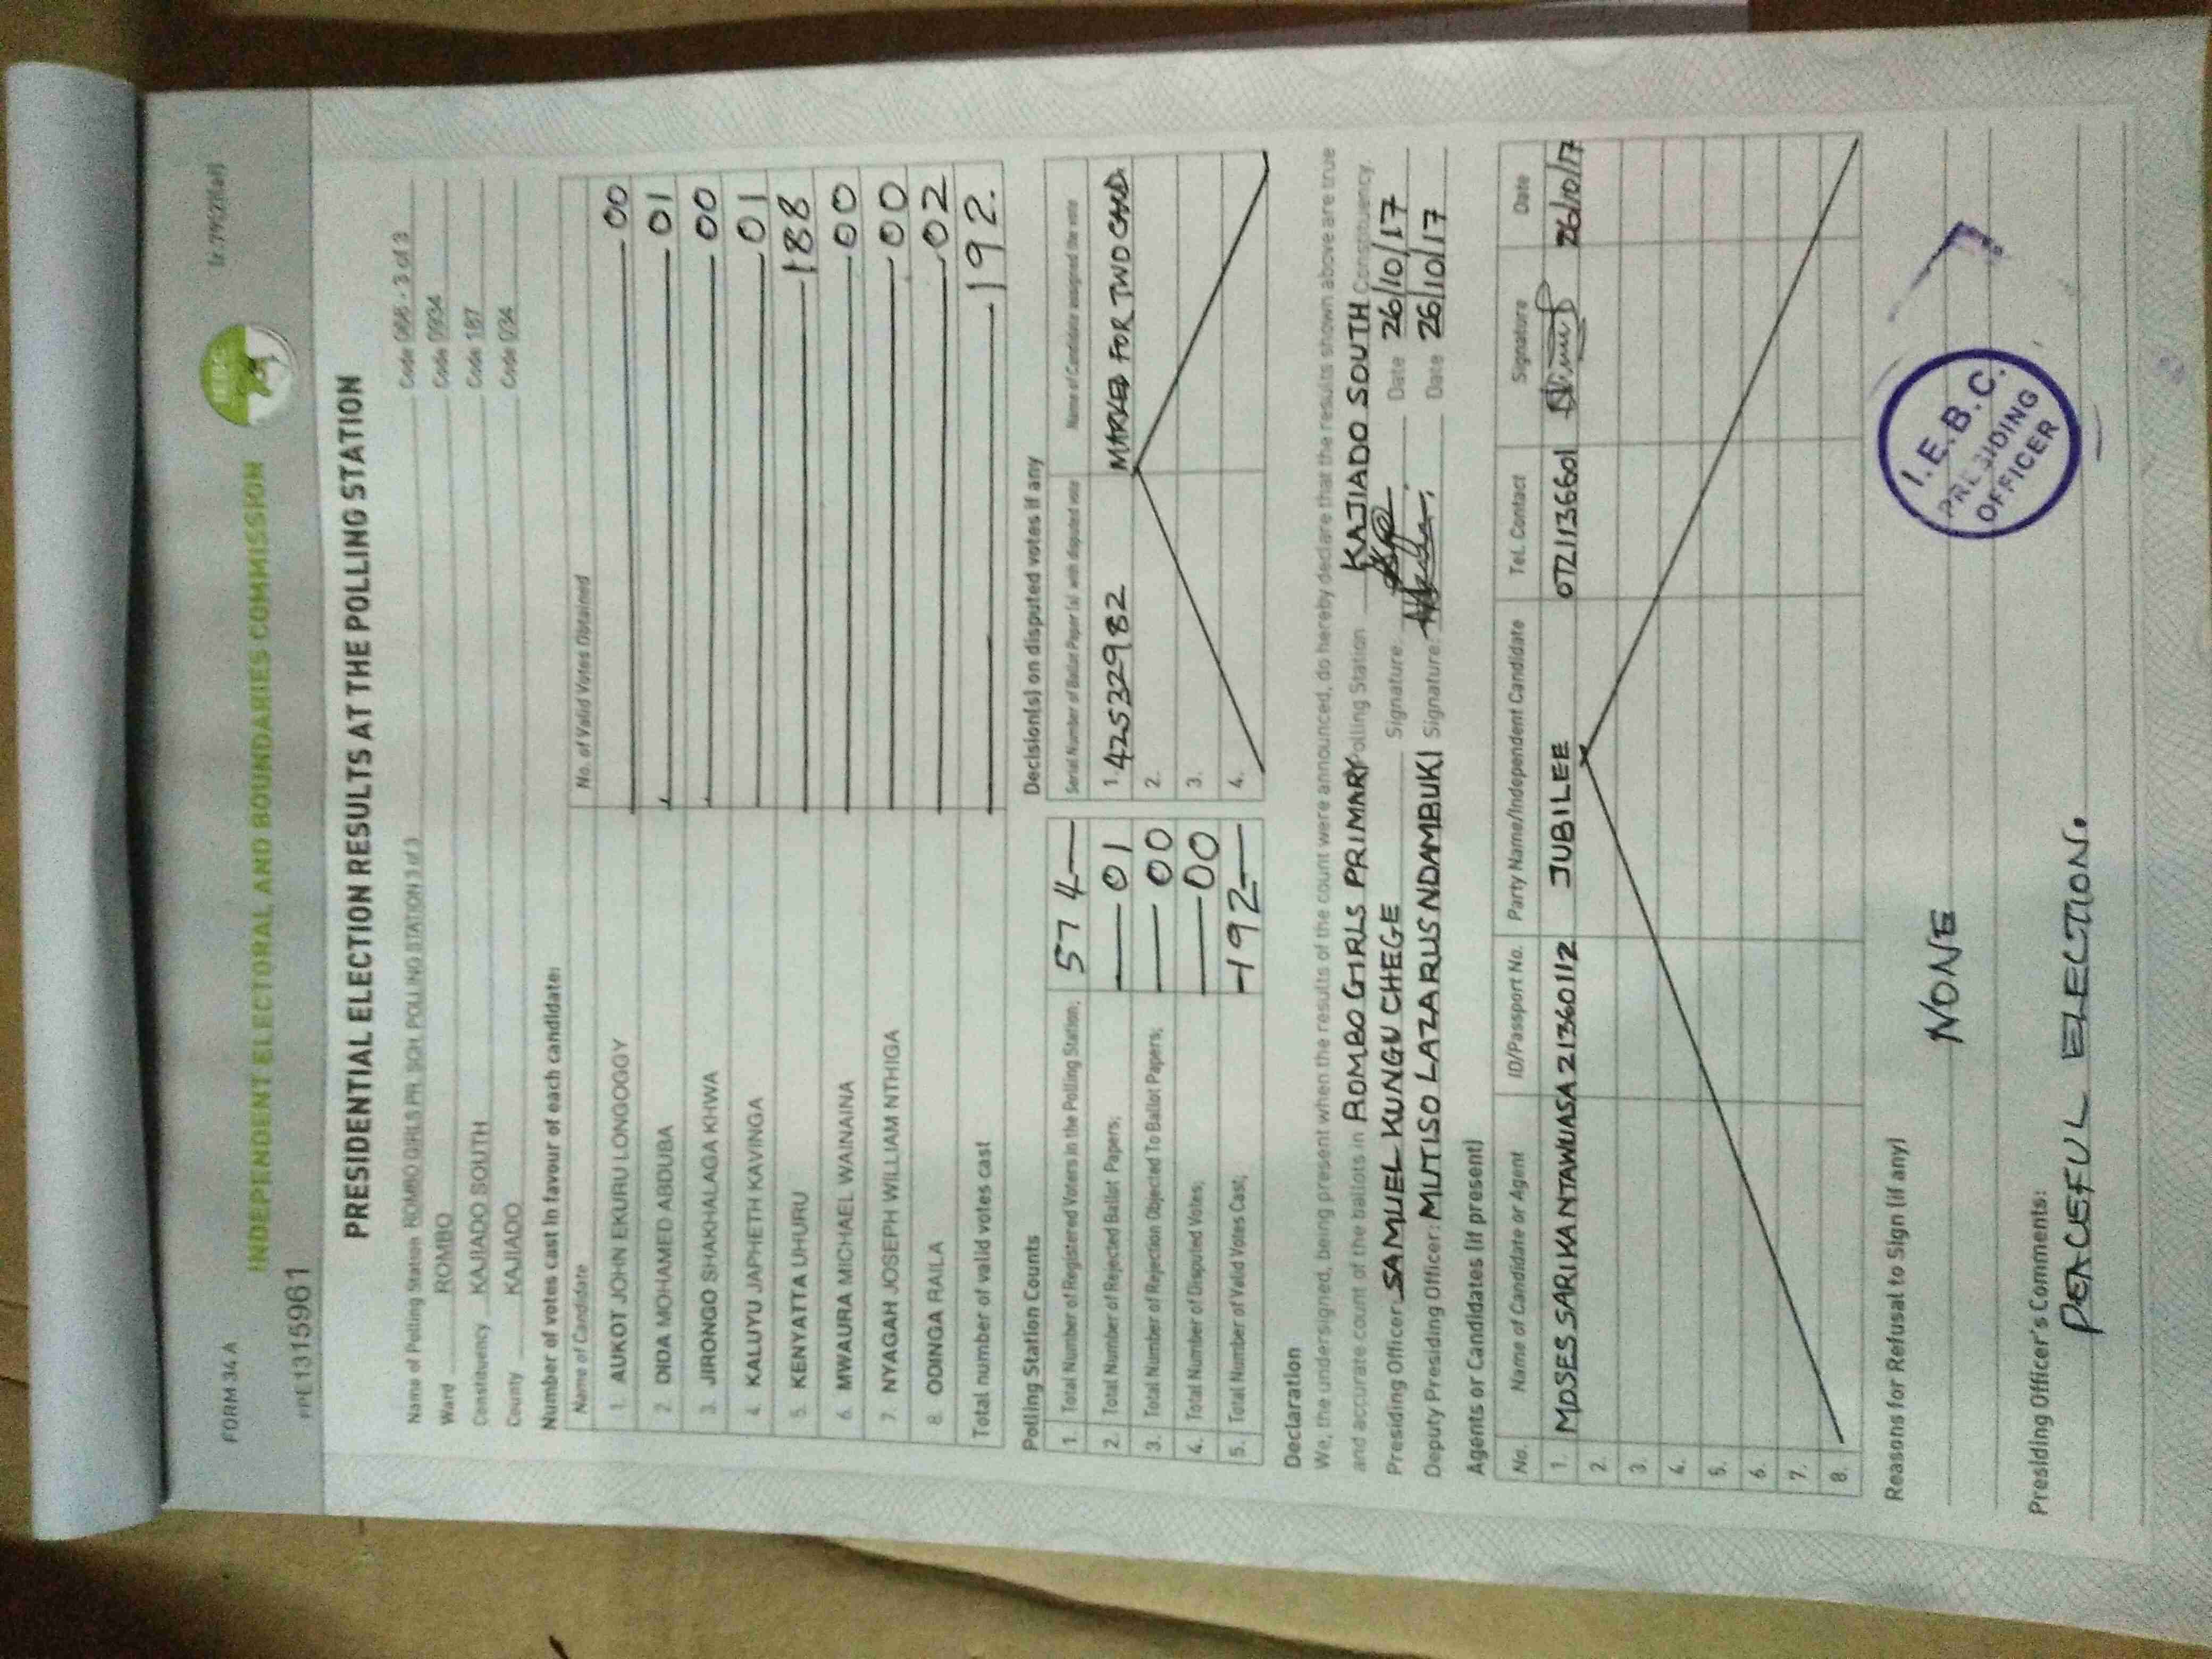 FORM 34 A
INDEPENDENT ELECTORAL AND BOUNDARIES COMMISSION
PRE 1315961
PRESIDENTIAL ELECTION RESULTS AT THE POLLING STATION
Name of Polling Station ROMBO GIRLS PR. SCH. POLLING STATION 3 of 3 Code 066 - 3 of 3
Ward ROMBO Code 0934
Constituency KAJIADO SOUTH Code 187
County KAJIADO Code 034
Number of votes cast in favour of each candidate:
Name of Candidate No. of Valid Votes Obtained
1. AUKOT JOHN EKURU LONGOGGY 00
2. DIDA MOHAMED ABDUBA 01
3. JIRONGO SHAKHALAGA KHWA 00
4. KALUYU JAPHETH KAVINGA 01
5. KENYATTA UHURU 188
6. MWAURA MICHAEL WAINAINA 00
7. NYAGAH JOSEPH WILLIAM NTHIGA 00
8. ODINGA RAILA 02
Total number of valid votes cast 192.
Polling Station Counts
1. Total Number of Registered Voters in the Polling Station; 574
2. Total Number of Rejected Ballot Papers; 01
3. Total Number of Rejection Objected To Ballot Papers; 00
4. Total Number of Disputed Votes; 00
5. Total Number of Valid Votes Cast; 192
Decision(s) on disputed votes if any
Serial Number of Ballot Paper (s) with disputed vote Name of Candidate assigned the vote
1. 42532982 MARKED FOR TWO
2.
3.
4.
Declaration
We, the undersigned, being present when the results of the count were announced, do hereby declare that the results shown above are true
and accurate count of the ballots in ROMBO GIRLS PRIMARY Polling Station KAJIADO SOUTH Constituency.
Presiding Officer SAMUEL KUNGU CHEGE Signature: Date 26/10/17
Deputy Presiding Officer: MUTISO LAZARUS NDAMBUKI Signature: Date 26/10/17
Agents or Candidates (if present)
No. Name of Candidate or Agent ID/Passport No. Party Name/Independent Candidate Tel. Contact Signature Date
1. MOSES SARIKA NTAWUASA 21360112 JUBILEE 0721136601 26/10/17
2.
3.
4.
5.
6.
7.
8.
Reasons for Refusal to Sign (if any)
NONE
I.E.B.C.
PRESIDING
OFFICER
Presiding Officer's Comments:
PEACEFUL ELECTION.